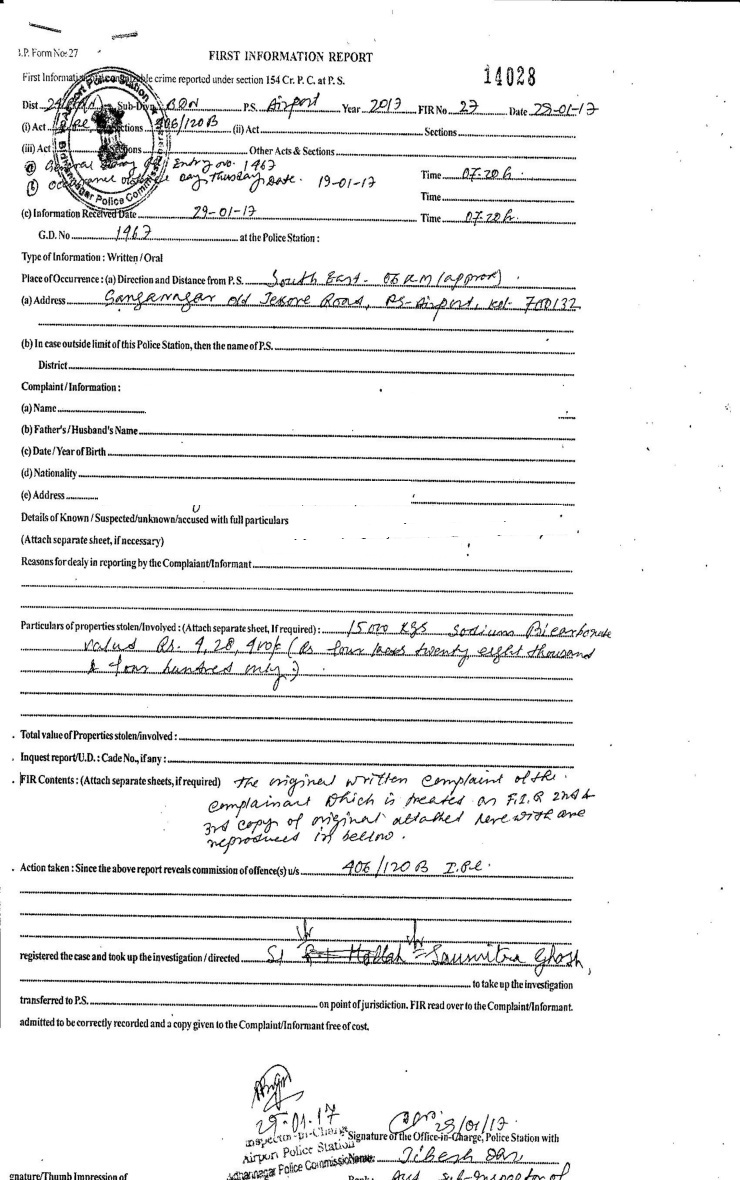 I.P. Form No: 27
FIRST INFORMATION REPORT
14028
First Information of cognizable crime reported under section 154 Cr. P. C. at P. S.
Dist Sub-Divn. BDN P.S. Airport Year 2017 FIR No. 27 Date 29-01-17
(i) Act IPC Sections 406/120B (ii) Act Sections
(iii) Act Sections Other Acts & Sections
(a) General Diary Entry no. 1967 Time 07.20 h.
(b) Occurrence of the Day, Thursday, Date. 19-01-17 Time
(c) Information Received Date 29-01-17 Time 07.20 h.
G.D. No 1967 at the Police Station :
Type of Information : Written / Oral
Place of Occurrence : (a) Direction and Distance from P. S. South East - 06 KM (approx)
(a) Address Ganganagar old Jesore Road, PS-Airport, Kol- 700132
(b) In case outside limit of this Police Station, then the name of P.S.
District
Complaint / Information :
(a) Name
(b) Father's / Husband's Name
(c) Date / Year of Birth
(d) Nationality
(e) Address
Details of Known / Suspected/unknown/accused with full particulars
(Attach separate sheet, if necessary)
Reasons for dealy in reporting by the Complaiant/Informant
Particulars of properties stolen/Involved : (Attach separate sheet, If required) : 15000 KGS Sodium Bicarbonate
value Rs. 4,28,400/- (Rs four lacs twenty eight thousand
& four hundred only)
Total value of Properties stolen/involved :
Inquest report/U.D. : Cade No., if any :
FIR Contents : (Attach separate sheets, if required) The original written complaint of the
complainant which is treated as F.I.R 2nd &
3rd copy of original attached here with are
reproduces in bellow.
Action taken : Since the above report reveals commission of offence(s) u/s 406/120 B I.P.C.
registered the case and took up the investigation / directed SI Saumitra Ghosh,
to take up the investigation
transferred to P.S. on point of jurisdiction. FIR read over to the Complaint/Informant.
admitted to be correctly recorded and a copy given to the Complaint/Informant free of cost.
29-01-17
29/01/17
Inspector-in-Charge
Signature of the Office-in-Charge, Police Station with
Airport Police Station
Bidhannagar Police Commissionerate
Name: Dibesh Das
gnature/Thumb Impression of
Rank: Sub-Inspector of